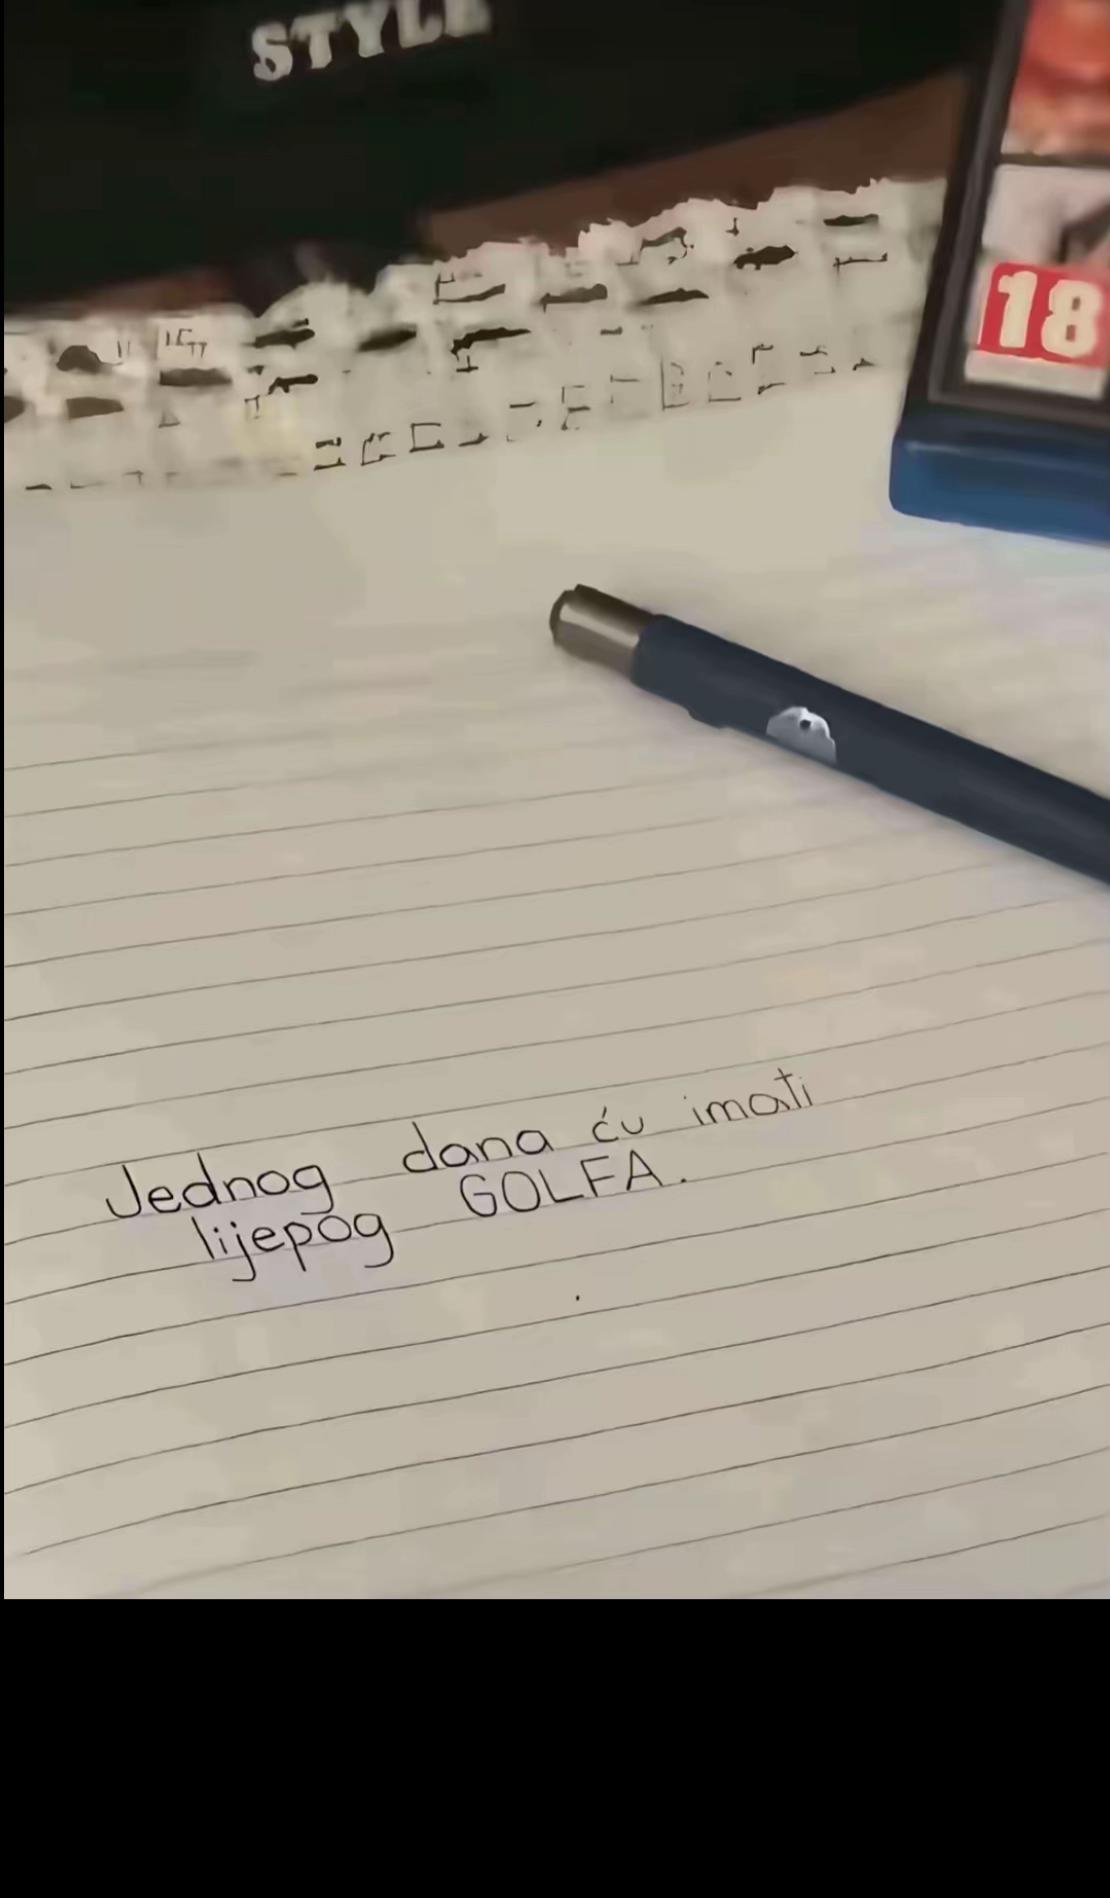 STYLE
18
Jednog dana ću imati
lijepog GOLFA.